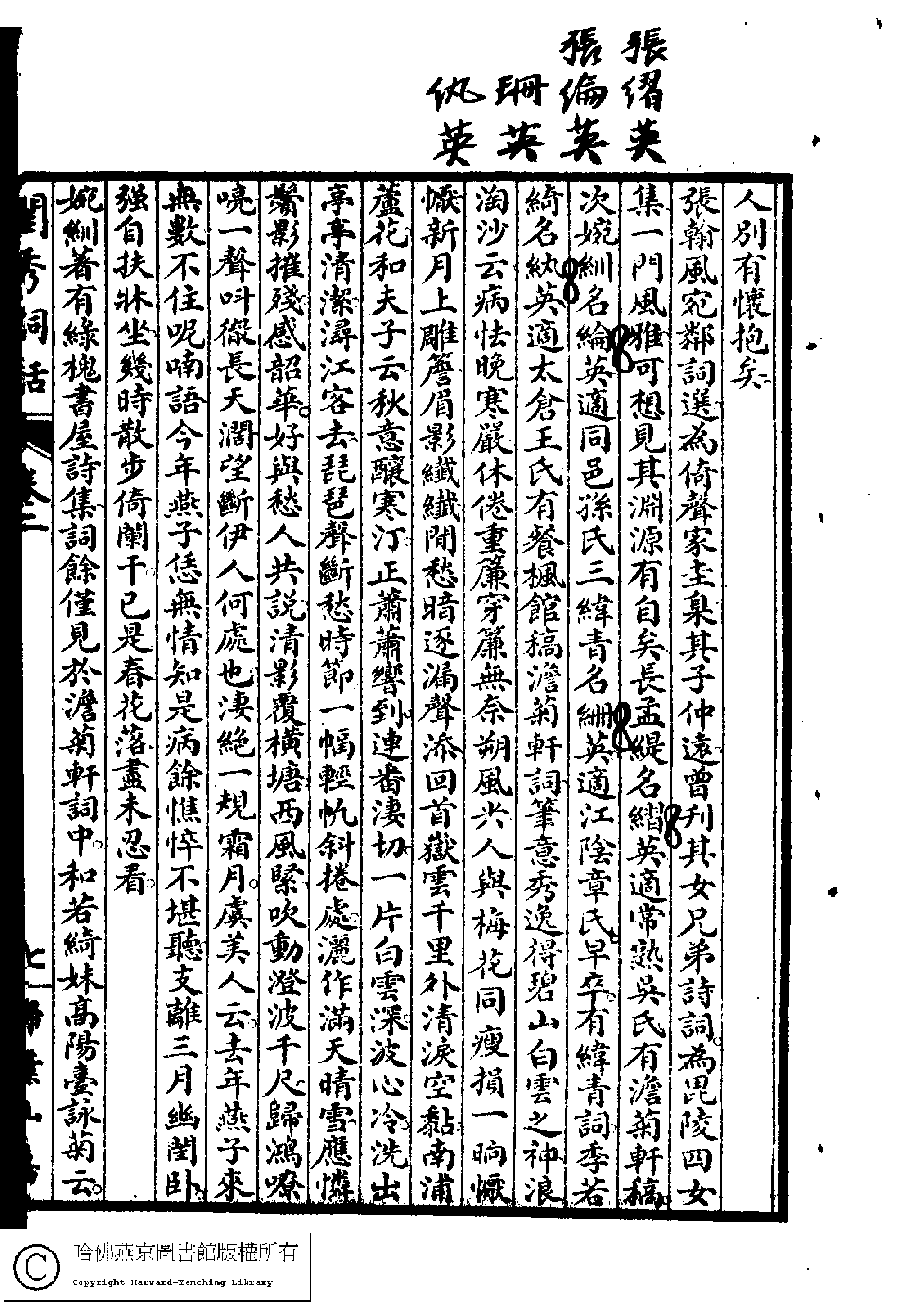 張㩇英
張綸英
珊英
紈英
人別有懷抱矣
張翰風宛鄰詞選為倚聲家圭臬其子仲遠曾刋其女兄弟詩詞為毘陵四女
集一門風雅可想見其淵源有自矣長孟緹名㩇英適常熟吳氏有澹菊軒稿
次婉紃名綸英適同邑孫氏三緯青名姍英適江陰章氏早卒有緯青詞季若
綺名紈英適太倉王氏有餐楓館稿澹菊軒詞筆意秀逸得碧山白雲之神浪
淘沙云病怯晚寒嚴休倦重簾穿簾無奈朔風尖人與梅花同瘦損一晌懨
懨新月上雕簷眉影纖纖閒愁暗逐漏聲添回首嶽雲千里外清淚空黏南浦
蘆花和夫子云秋意釀寒汀正蕭蕭響到連番淒切一片白雲深波心冷洗出
亭亭清潔潯江客去琵琶聲斷愁時節一幅輕帆斜捲處灑作滿天晴雪應憐
鬢影摧殘感韶華好與愁人共說清影覆橫塘西風緊吹動澄波千尺歸鴻嘹
嘵一聲叫徹長天濶望斷伊人何處也淒絕一規霜月虞美人云去年燕子來
無數不住呢喃語今年燕子恁無情知是病餘憔悴不堪聽支離三月幽閨卧
强自扶牀坐幾時散步倚闌干已是春花落盡未忍看
婉紃著有綠槐書屋詩集詞餘僅見於澹菊軒詞中和若綺妹高陽臺詠菊云
閨秀詞話
卷二
七
哈佛燕京圖書館版權所有
Copyright Harvard-Yenching Library